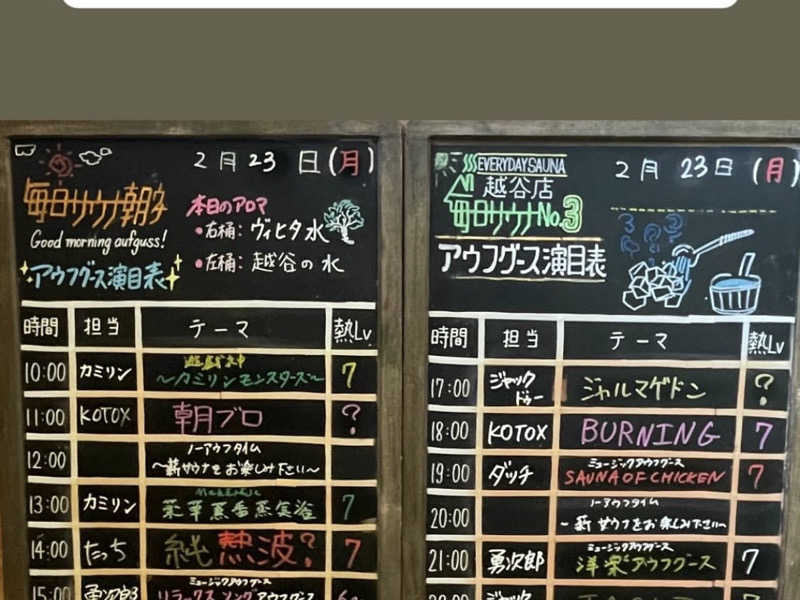 2月23日(月)
毎日サウナ朝子
Good morning aufguss!
アウフグース演目表
本日のアロマ
•右桶: ヴィヒタ水
•左桶: 越谷の水
時間 担当 テーマ 熱Lv
10:00 カミリン 遊戯神 〜カミリンモンスターズ〜 7
11:00 KOTOX 朝ブロ ?
12:00 ノーアウフタイム 〜薪サウナをお楽しみ下さい〜
13:00 カミリン 薬草薫香蒸気浴 7
14:00 たっち 純熱波? 7
15:00 勇次郎 ミュージックアウフグース リラックスソングアウフグース
EVERYDAY SAUNA
越谷店
毎日サウナNo.3
2月23日(月)
アウフグース演目表
時間 担当 テーマ 熱Lv
17:00 ジャックドゥー ジャルマゲドン ?
18:00 KOTOX BURNING 7
19:00 ダッチ ミュージックアウフグース SAUNA OF CHICKEN 7
20:00 ノーアウフタイム 〜薪サウナをお楽しみ下さい〜
21:00 勇次郎 ミュージックアウフグース 洋楽アウフグース 7